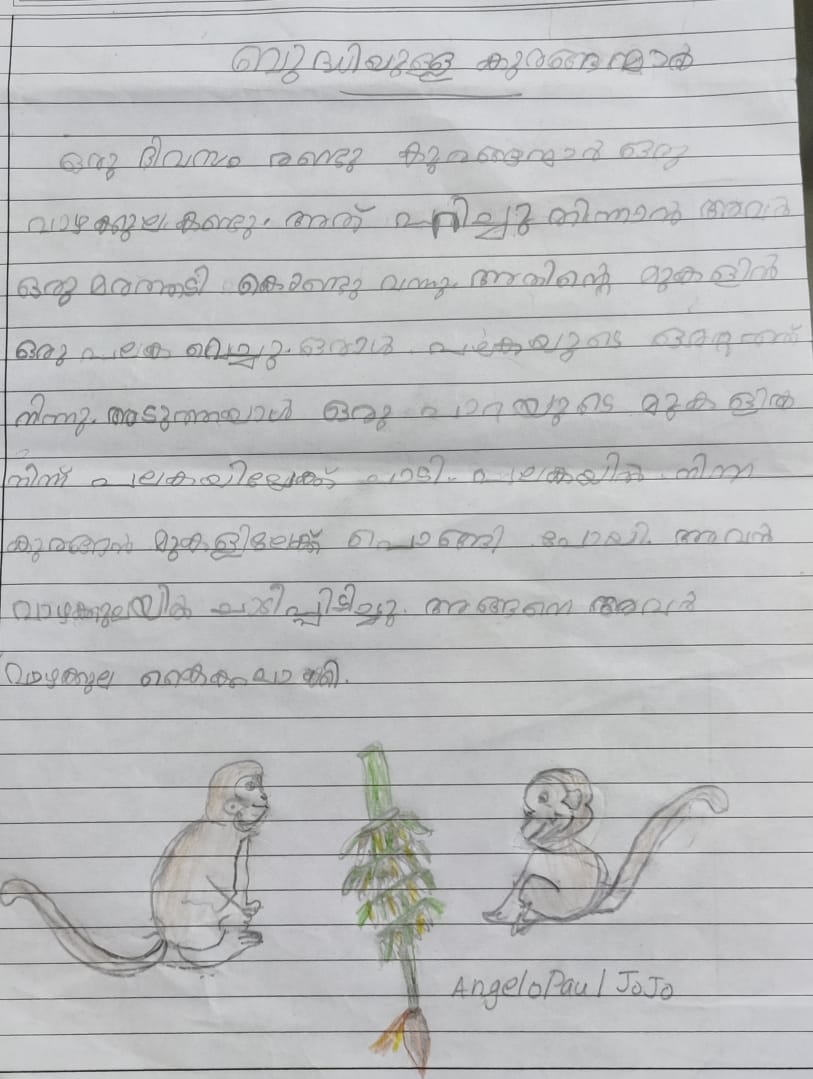 ബുദ്ധിയുള്ള കുരങ്ങന്മാർ
ഒരു ദിവസം രണ്ടു കുരങ്ങന്മാർ ഒരു
വാഴക്കുല കണ്ടു. അത് പറിച്ചു തിന്നാൻ അവർ
ഒരു മരത്തടി കൊണ്ടു വന്നു. അതിന്റെ മുകളിൽ
ഒരു പലക വെച്ചു. ഒരാൾ പലകയുടെ ഒരറ്റത്ത്
നിന്നു. അടുത്തയാൾ ഒരു പാറയുടെ മുകളിൽ
നിന്ന് പലകയിലേക്ക് ചാടി. പലകയിൽ നിന്ന
കുരങ്ങൻ മുകളിലേക്ക് പൊങ്ങി പോയി. അവൻ
വാഴക്കുലയിൽ ചാടിപ്പിടിച്ചു. അങ്ങനെ അവർ
വാഴക്കുല കൈക്കലാക്കി.
AngeloPaul JoJo